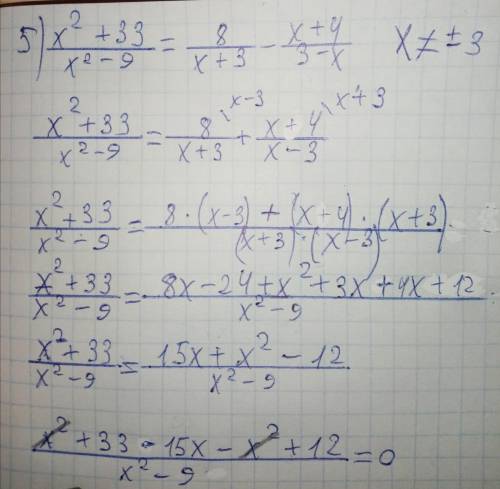 5) (x² + 33)/(x² - 9) = 8/(x + 3) - (x + 4)/(3 - x)  x ≠ ± 3
(x² + 33)/(x² - 9) = 8/(x + 3) \x-3 + (x + 4)/(x - 3) \x+3
(x² + 33)/(x² - 9) = (8 · (x - 3) + (x + 4) · (x + 3))/((x + 3) · (x - 3))
(x² + 33)/(x² - 9) = (8x - 24 + x² + 3x + 4x + 12)/(x² - 9)
(x² + 33)/(x² - 9) = (15x + x² - 12)/(x² - 9)
(x² + 33 - 15x - x² + 12)/(x² - 9) = 0